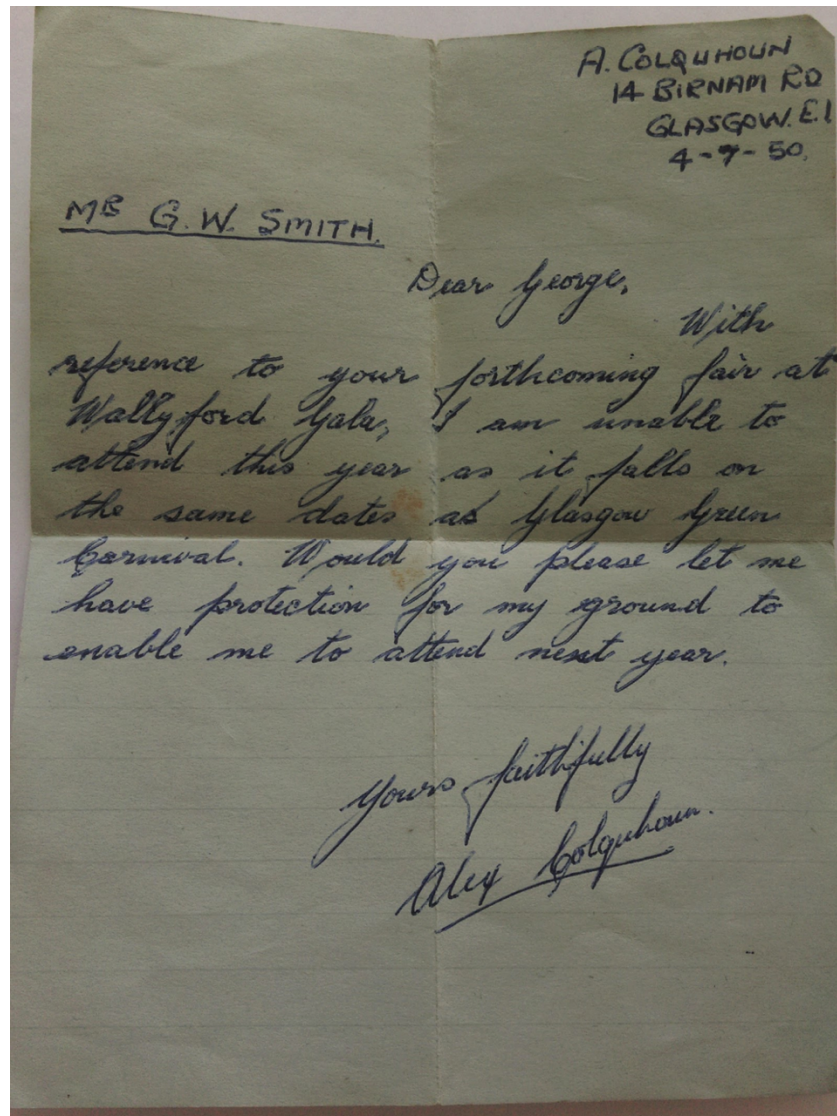 A. COLQUHOUN
14 BIRNAM RD
GLASGOW. E.1
4-7-50.
MR G.W. SMITH.
Dear George,
With
reference to your forthcoming fair at
Wallyford Gala, I am unable to
attend this year as it falls on
the same dates as Glasgow Green
Carnival. Would you please let me
have protection for my ground to
enable me to attend next year.
Yours faithfully
Alex Colquhoun.